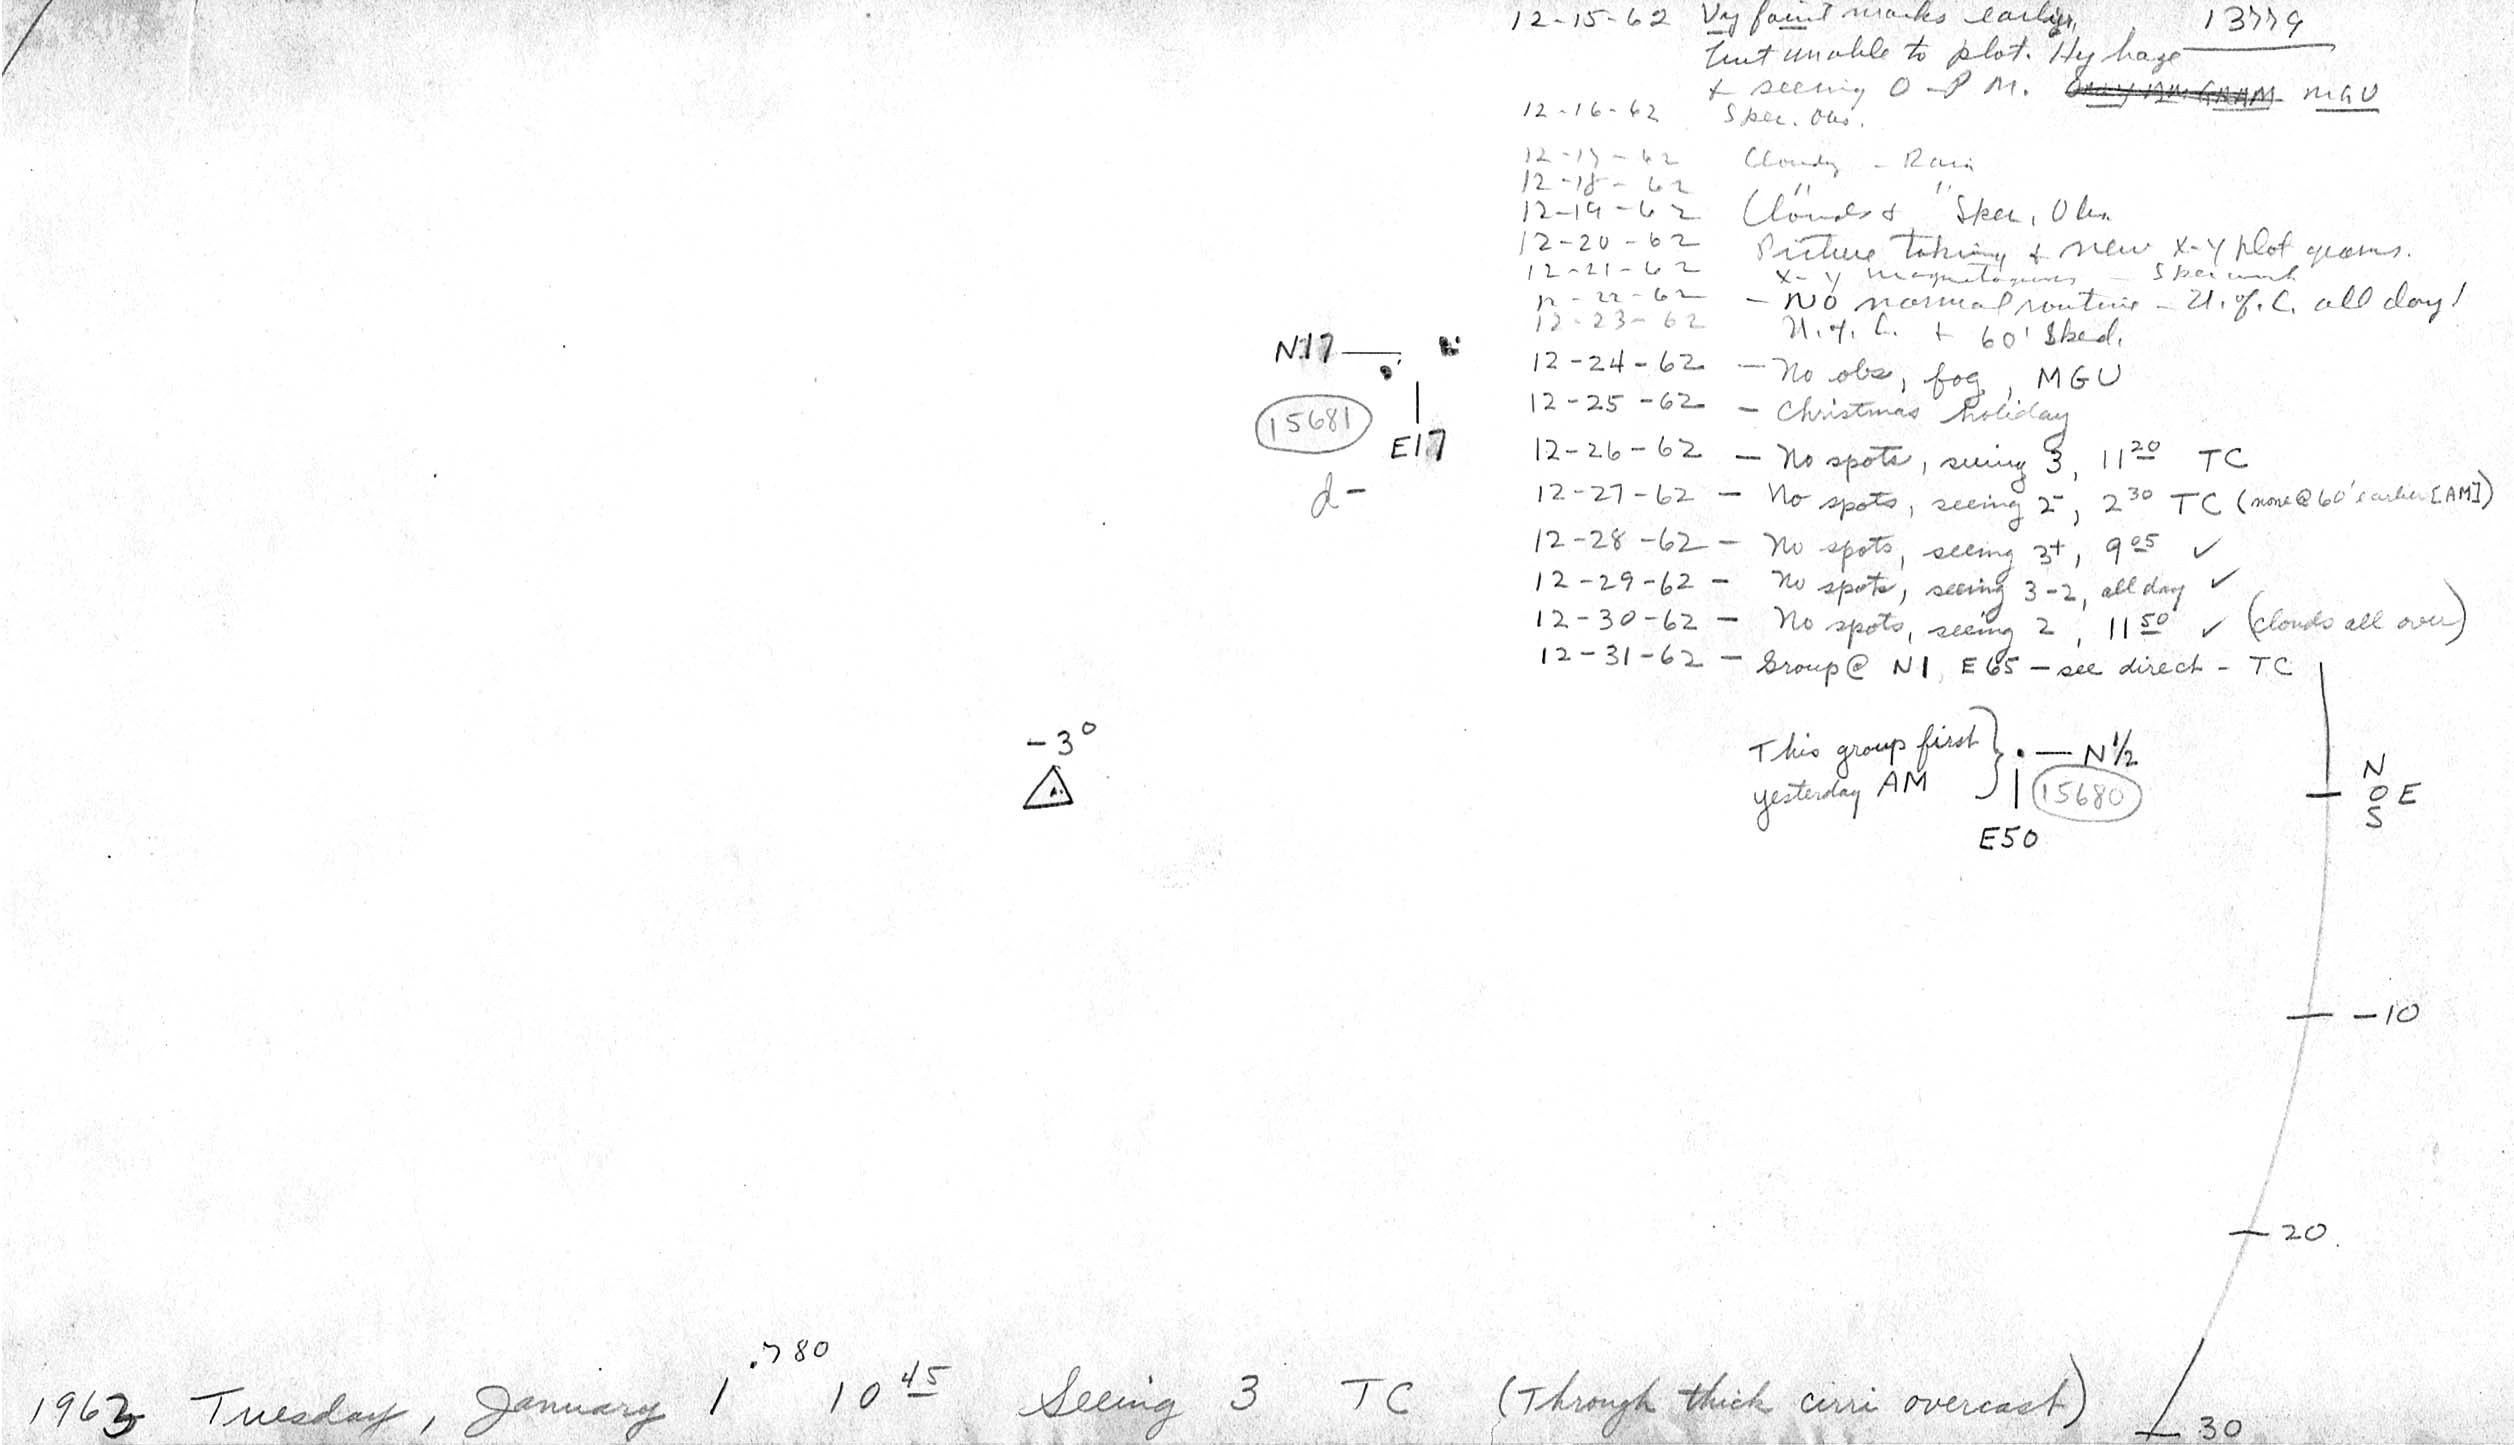 12-15-62 Vy faint marks earlier, 13779
but unable to plot. Hy haze
+ seeing 0 - P M. MGU
12-16-62 Spec. Obs.
12-17-62 Cloudy - Rain
12-18-62 " "
12-19-62 Clouds + Spec. Obs.
12-20-62 Picture taking & new X-Y plot grams.
12-21-62 X-Y magnetograms - Spec work
12-22-62 - NO normal routine - U. of. C. all day!
12-23-62 U. of. C. + 60' Sked.
12-24-62 - No obs, fog, MGU
12-25-62 - Christmas holiday
12-26-62 - No spots, seeing 3, 11 20 TC
12-27-62 - No spots, seeing 2-, 2 30 TC (none @ 60' earlier [AM])
12-28-62 - No spots, seeing 3+, 9 05 ✓
12-29-62 - No spots, seeing 3-2, all day ✓
12-30-62 - No spots, seeing 2, 11 50 ✓ (clouds all over)
12-31-62 - Group @ N1, E65 - see direct - TC
N17
15681
E17
d-
-3°
This group first } . — N 1/2
yesterday AM 15680
E50
N
0 E
S
-10
20
30
1963 Tuesday, January 1 .780 10 45 Seeing 3 TC (Through thick cirri overcast)